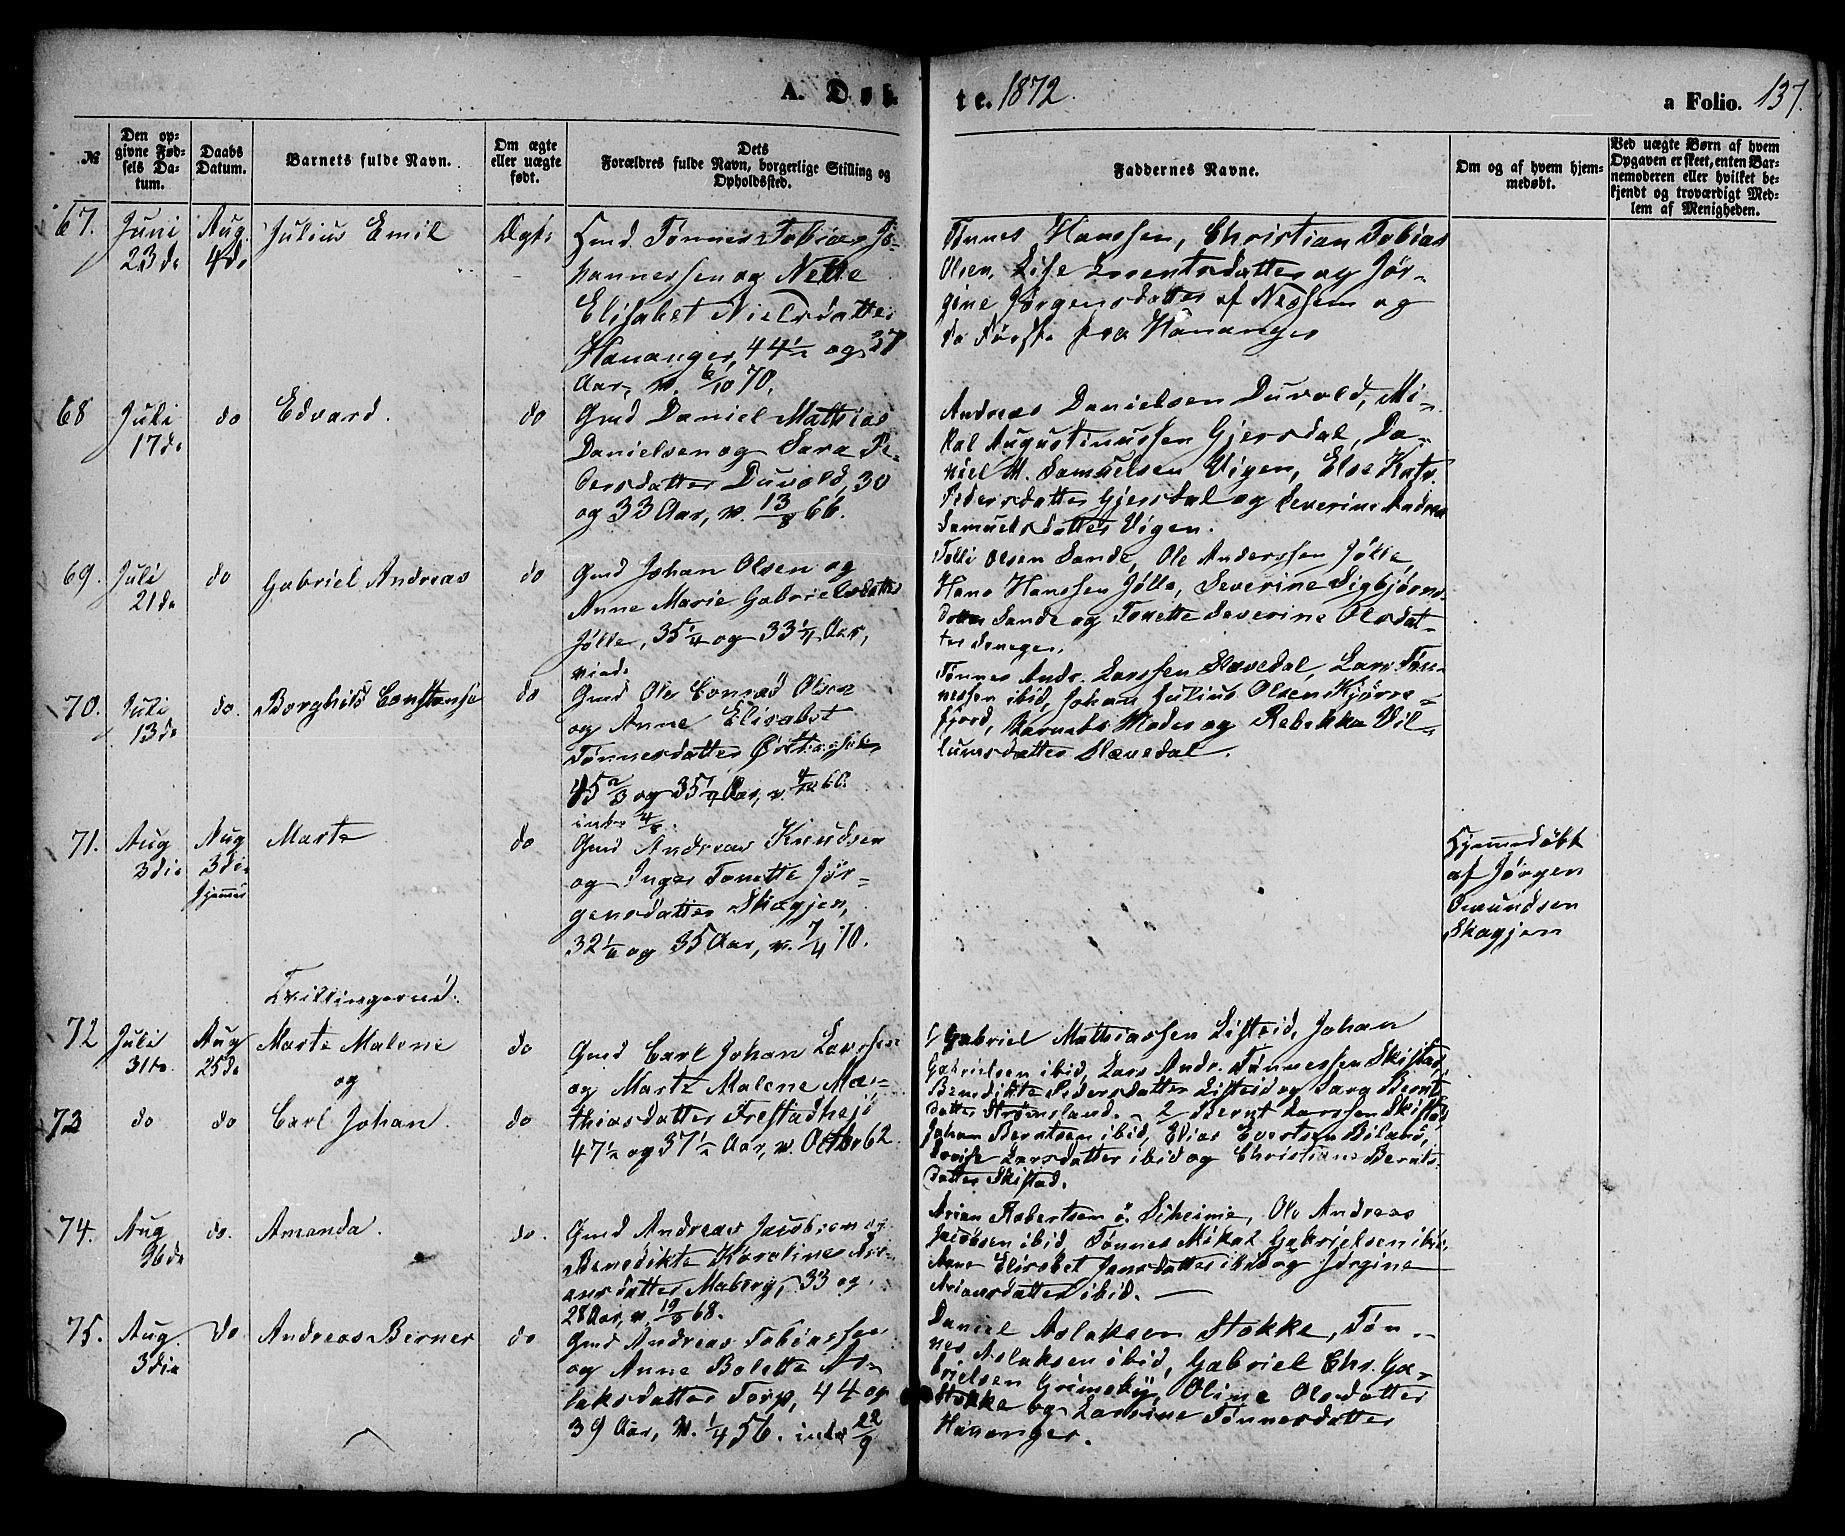 A. Døb
te. 1872.
a Folio. 137.
№
Den op-
givne Fød-
sels Da-
tum.
Daabs
Datum.
Barnets fulde Navn.
Om ægte
eller uægte
født.
Dets
Forældres fulde Navn, borgerlige Stilling og
Opholdssted.
Faddernes Navne.
Om og af hvem hjem-
medøbt.
Ved uægte Børn af hvem
Opgaven er skeet, enten Bar-
nemoderen eller hvilket be-
kjendt og troværdigt Med-
lem af Menigheden.
67.
Juni
23de
Aug.
4de
Julius Emil
Ægte
Gmd. Tønnes Tobias Jo-
hannessen og
Elisabet Nielsdatter
Hananger, 44½ og 37
Aar, v. 6/10 70.
Tønnes Hanssen, Christian Tobias
Olsen, Lise Lorentsdatter og Jør-
gine Jørgensdatter af Nessem og
de første fra Hananger
68
Juli
17de
do
Edvard.
do
Gmd Daniel Mathias
Danielsen og Sara Pe-
dersdatter Duvold, 30
og 33 Aar, v. 13/8 66.
Andreas Danielsen Duvold, Mi-
kal Augustinussen Gjersdal, Da-
niel M. Samuelsen Vigen, Else Katr.
Pedersdatter Gjersdal og Severine Andrea
Samuelsdatter Vigen.
69.
Juli
21de
do
Gabriel Andreas
do
Gmd Johan Olsen og
Anne Marie Gabrielsdatter
Jølle, 35¼ og 33¼ Aar,
Olsen Sande, Ole Anderssen Jølle,
Hans Hanssen Jølle, Severine Sigbjørns-
datter Sande og Tonette Severine Olsdat-
ter
70.
Juli
13de
do.
Borghild Constanse
do
Gmd Ole Conrad Olsen
og Anne Elisabet
Tønnesdatter
45⅔ og 35 Aar, v. 60.
Tønnes Andr. Larssen Slævedal, Lars Tøn-
nessen ibid, Johan Julius Olsen Kjørre-
fjord, Barnets Moder og Rebekka Vil-
lumsdatter Slævedal.
71.
Aug
3die
Aug
3die
hjemme
Marte
do
Gmd Andreas Knudsen
og Inger Tonette Jør-
gensdatter Skagjen,
32 og 35 Aar, v. 7/4 70.
Hjemmedøbt
af Jørgen
Omundsen
Skagjen
Tvillingerne:
72
Juli
31te
Aug
25de
Marte Malene
og
do
Gmd Carl Johan Larssen
og Marte Malene Ma-
thiasdatter Frestadhejo
47½ og 37½ Aar, v. Octbr 62.
1 Gabriel Mathiassen Listeid, Johan
Gabrielsen ibid, Lars Andr. Tønnessen Skistad,
Benedikte Pedersdatter Listeid og Sara Bernts
datter Strømsland. – 2 Bernt Larssen Skistad
Johan Berntsen ibid, Elias Evertsen Biland,
Lovise Larsdatter ibid og Christiane Bernts-
datter Skistad.
73
do
do
Carl Johan.
do
74.
Aug
do.
Amanda.
do.
Gmd Andreas Jacobsen og
Benedikte Karoline Ari-
ansdatter Maberg, 33 og
28 Aar, v. 68.
Arian Robertsen Ø. Seheime, Ole Andreas
Jacobsen ibid, Tønnes Mikal Gabrielsen ibid,
Anne Elisabet Jansdatter ibid og Jørgine
Ariansdatter ibid. —
75.
Aug
3die
do
Andreas Berner
do
Gmd Andreas Tobiassen
og Anne Bolette As-
laksdatter Torp, 44 og
39 Aar, v. 1/4 56. 22/9
Daniel Aslaksen Stokke, Tøn-
nes Aslaksen ibid, Gabriel Chr. Ga-
brielsen Grimsby, Oline Olsdatter
Stokke og Lavine Tønnesdatter
Hananger.